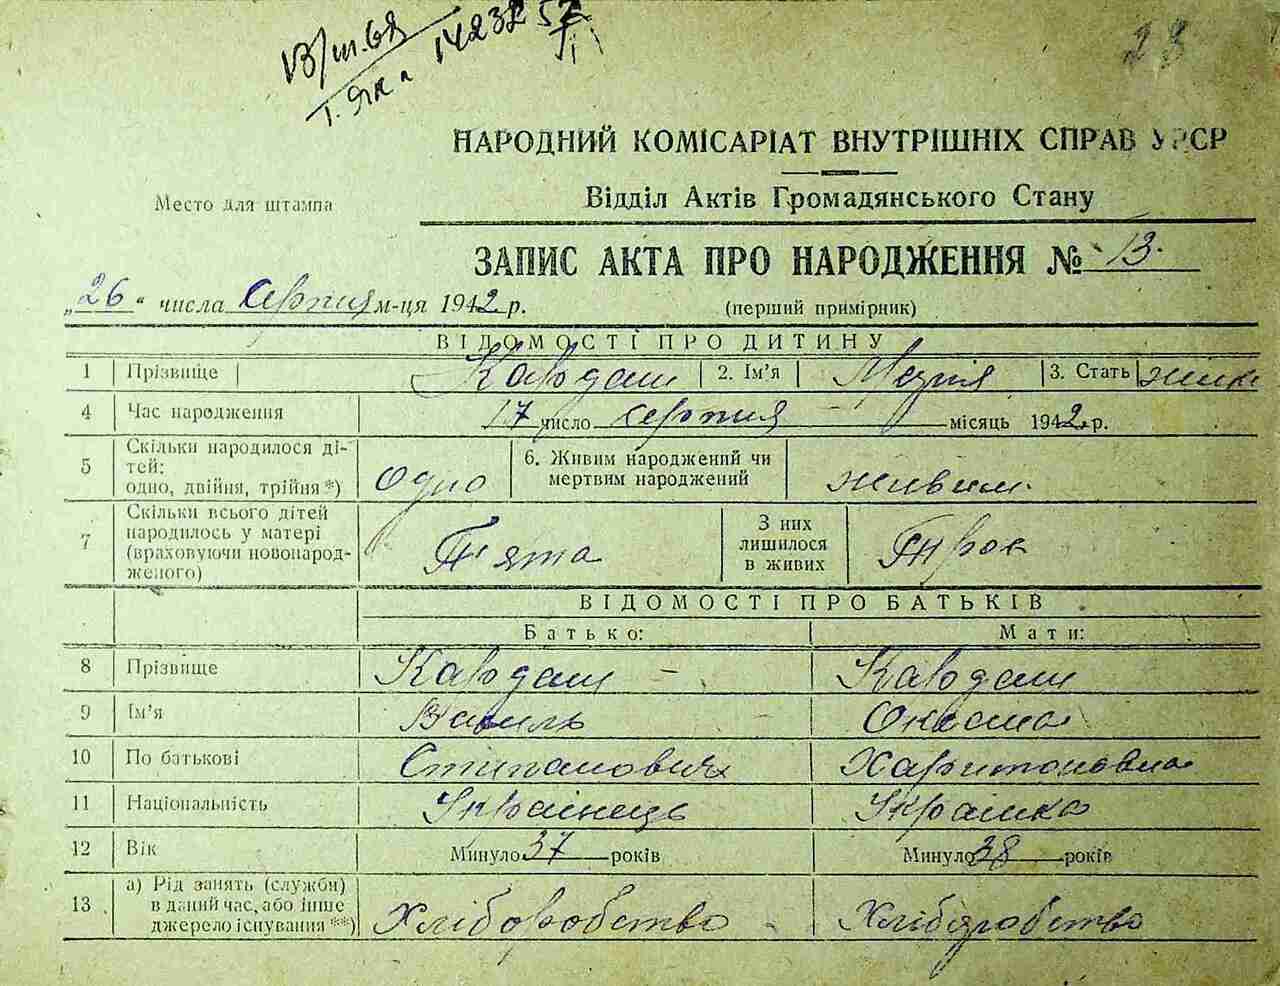 13/III.68
142325
23
НАРОДНИЙ КОМІСАРІАТ ВНУТРІШНІХ СПРАВ УРСР
Место для штампа
Відділ Актів Громадянського Стану
ЗАПИС АКТА ПРО НАРОДЖЕННЯ № 13.
„26“ числа Серпня м-ця 1942 р.
(перший примірник)
ВІДОМОСТІ ПРО ДИТИНУ
1 Прізвище Кавдаш 2. Ім'я Марія 3. Стать жінк
4 Час народження 17 число серпня місяць 1942 р.
5 Скільки народилося дітей: одно, двійня, трійня*) одно 6. Живим народжений чи мертвим народжений живим.
7 Скільки всього дітей народилось у матері (враховуючи новонародженого) П'ята З них лишилося в живих
ВІДОМОСТІ ПРО БАТЬКІВ
Батько: Мати:
8 Прізвище Кавдаш – Кавдаш
9 Ім'я Василь Оксана
10 По батькові Стипанович Харитоновна
11 Національність Українець Українка
12 Вік Минуло 37 років Минуло 38 років
13 а) Рід занять (служби) в даний час, або інше джерело існування **) Хліборобство Хліборобство